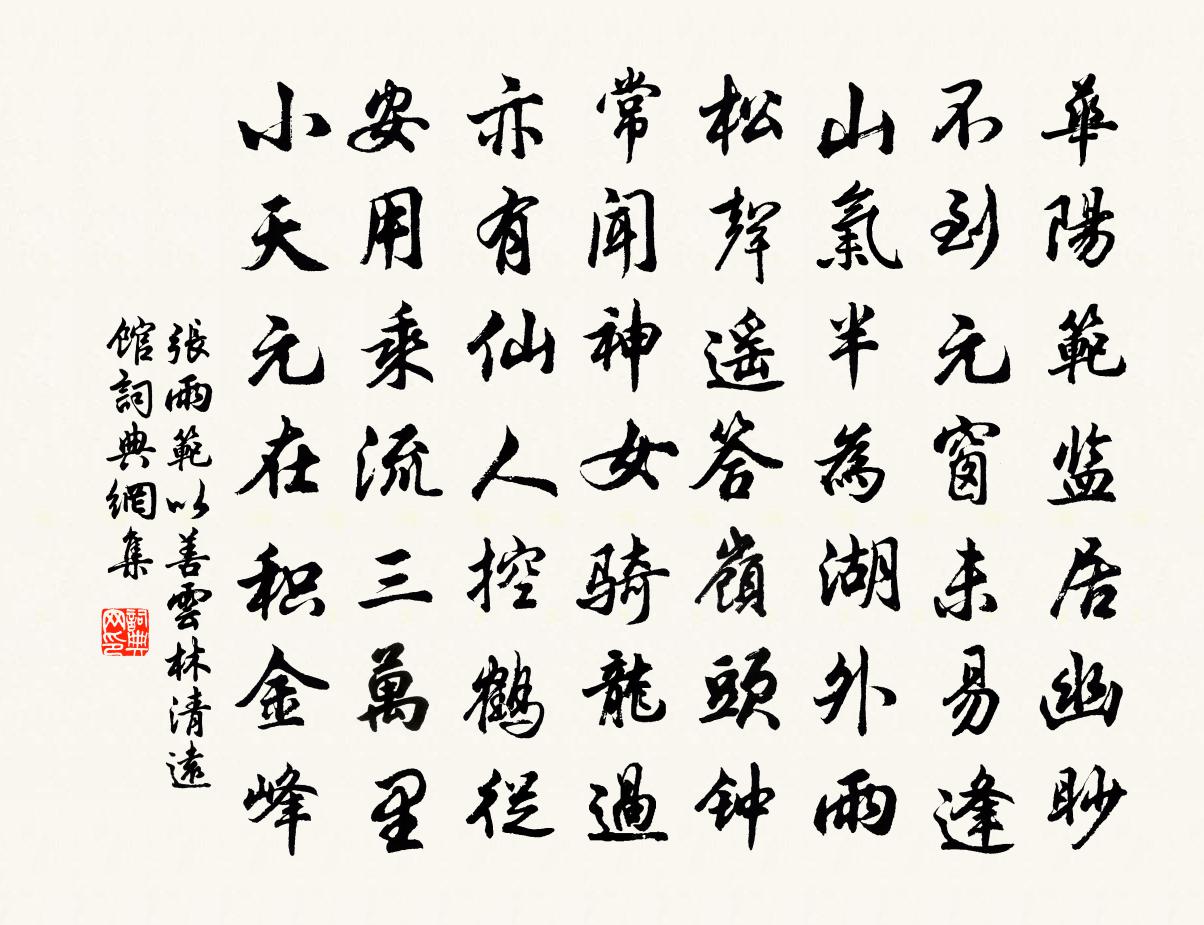 華陽範监居幽眇
不到元窗未易逢
山氣半為湖外雨
松聲遥答嶺頭钟
常聞神女騎龍過
亦有仙人控鶴從
安用乘流三萬里
小天元在积金峰
張雨範以善雲林清遠
館詞典網集
詞典
网印